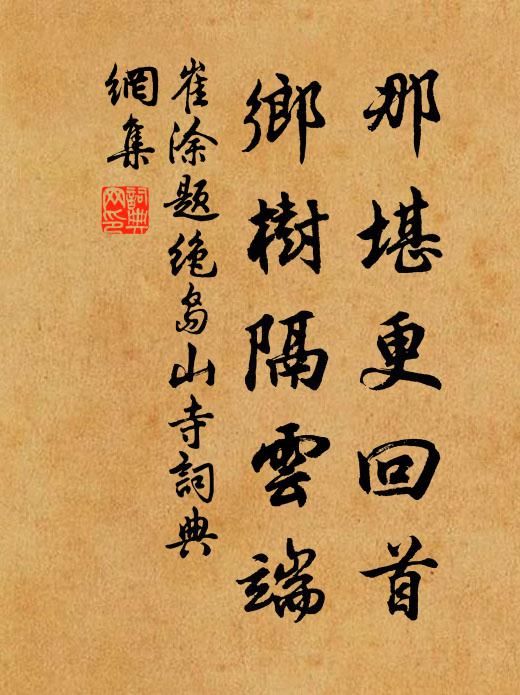 那堪更回首
鄉樹隔雲端
崔涂题绝岛山寺詞典
網集
詞典網印